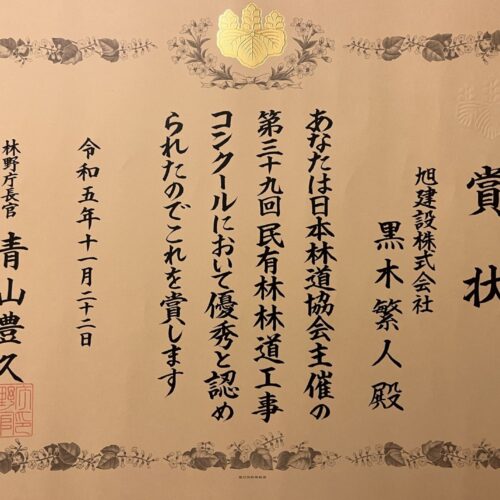 賞状
旭建設株式会社
黒木繁人殿
あなたは日本林道協会主催の
第三十九回民有林林道工事
コンクールにおいて優秀と認め
られたのでこれを賞します
令和五年十一月二十二日
林野庁長官
青山豊久